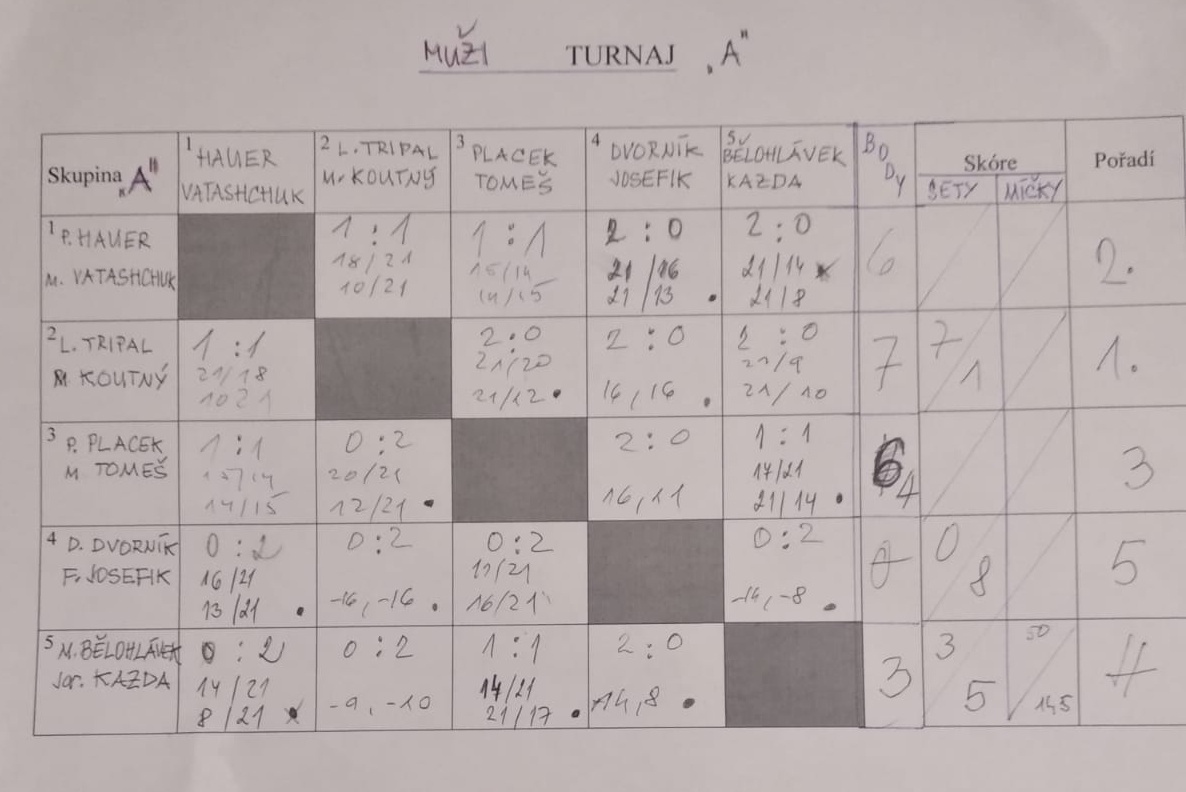 MUŽI TURNAJ „A"
Skupina „A" 1 HAUER VATASHCHUK 2 L. TRIPAL M. KOUTNÝ 3 PLACEK TOMEŠ 4 DVORNÍK JOSEFIK 5 BĚLOHLÁVEK KAZDA BODY Skóre SETY MÍČKY Pořadí
1 P. HAUER
M. VATASHCHUK
1:1
18/21
10/21
1:1
15/14
14/15
2:0
21/16
21/13 .
2:0
21/14 x
21/8
6
2.
2 L. TRIPAL
M KOUTNÝ
1:1
21/18
10 21
2:0
21/20
21/12 .
2:0
16, 16 .
2:0
21/10
7
7/1
1.
3 P. PLACEK
M. TOMEŠ
1:1
14/15
0:2
20/21
12/21 .
2:0
16, 11
1:1
17/21
21/14 .
4
3
4 D. DVORNÍK
F. JOSEFIK
0:2
16/21
13/21 .
0:2
-16, -16 .
0:2
16/21
0:2
-14, -8 .
0
0/8
5
5 M. BĚLOHLÁVEK
Jar. KAZDA
0:2
14/21
8/21 x
0:2
-9, -10
1:1
14/21
21/17 .
2:0
14, 8 .
3
3/5
4